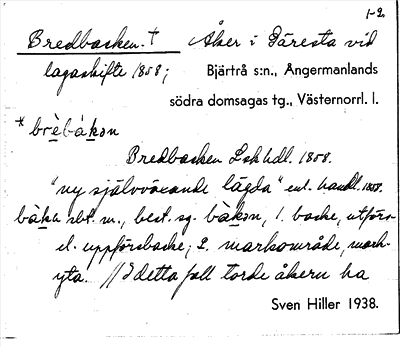 1-2.
Bredbacken. † Åker i Päresta vid
lagaskifte 1858; Bjärtrå s:n., Ångermanlands
södra domsagas tg., Västernorrl. l.
* brèbàkən
Bredbacken Lskhdl. 1858.
"ny självväxande lägda" enl. handl. 1858.
bàkə sbt. m., best. sg. bàkən, 1. backe, utförs-
el. uppförsbacke; 2. markområde, mark-
yta. // I detta fall torde åkern ha
Sven Hiller 1938.